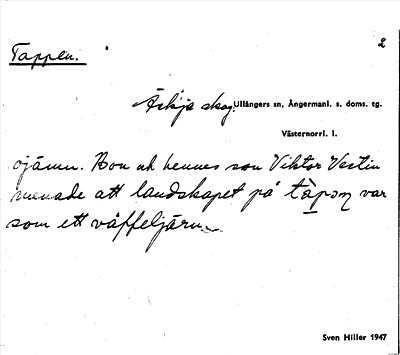 Tappen.
2
Äskja skog. Ullångers sn, Ångermanl. s. doms. tg.
Västernorrl. l.
ojämn. Hon och hennes son Viktor Vestin
menade att landskapet på tàpən var
som ett våffeljärn.
Sven Hiller 1947